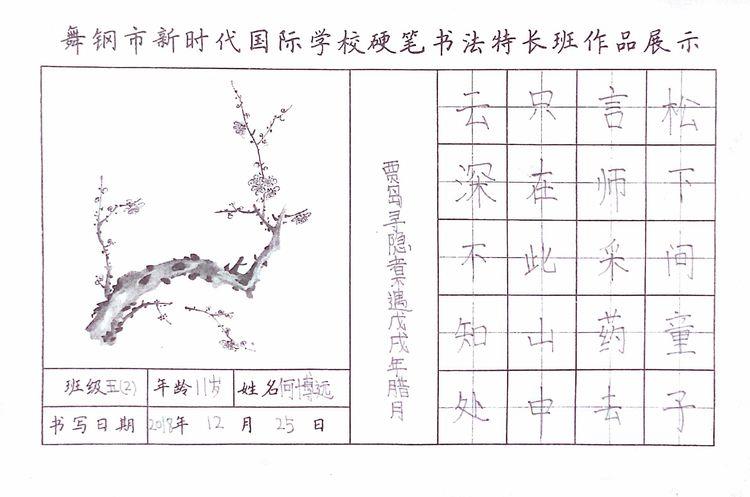 舞钢市新时代国际学校硬笔书法特长班作品展示
松下间童子
言师采药去
只在此山中
云深不知处
贾岛寻隐者不遇戊戌年腊月
班级 五(2) 年龄 11岁 姓名 何博远
书写日期 2018年 12 月 25 日